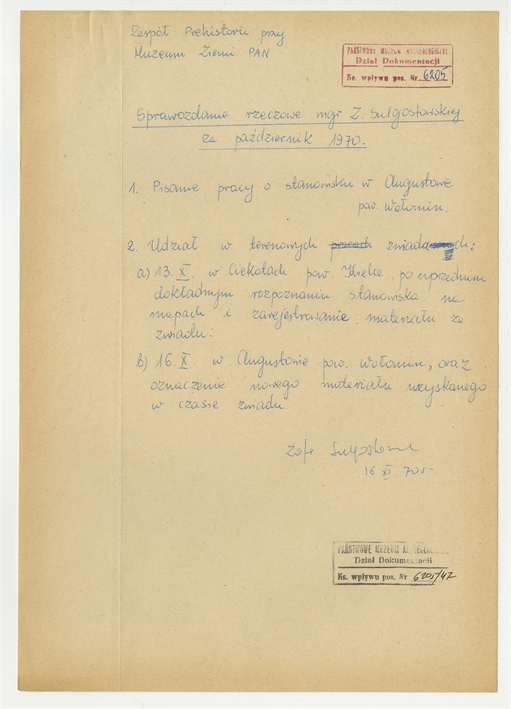 Zespół Prehistorii przy
Muzeum Ziemi PAN
PAŃSTWOWE MUZEUM ARCHEOLOGICZNE
Dział Dokumentacji
Ks. wpływu poz. Nr 6205
Sprawozdanie rzeczowe mgr Z. Sulgostowskiej
za październik 1970.
1. Pisanie pracy o stanowisku w Augustowie
pow. Wołomin.
2. Udział w terenowych pracach zwiadach:
a) 13. X. w Ciekotach pow. Kielce, po uprzednim
dokładnym rozpoznaniu stanowiska na
mapach i zarejestrowanie materiału ze
zwiadu.
b) 16. X w Augustowie pow. Wołomin, oraz
oznaczenie nowego materiału uzyskanego
w czasie zwiadu.
Zofia Sulgostowska
16 XI 70 r.
PAŃSTWOWE MUZEUM ARCHEOLOGICZNE
Dział Dokumentacji
Ks. wpływu poz. Nr 6205/42